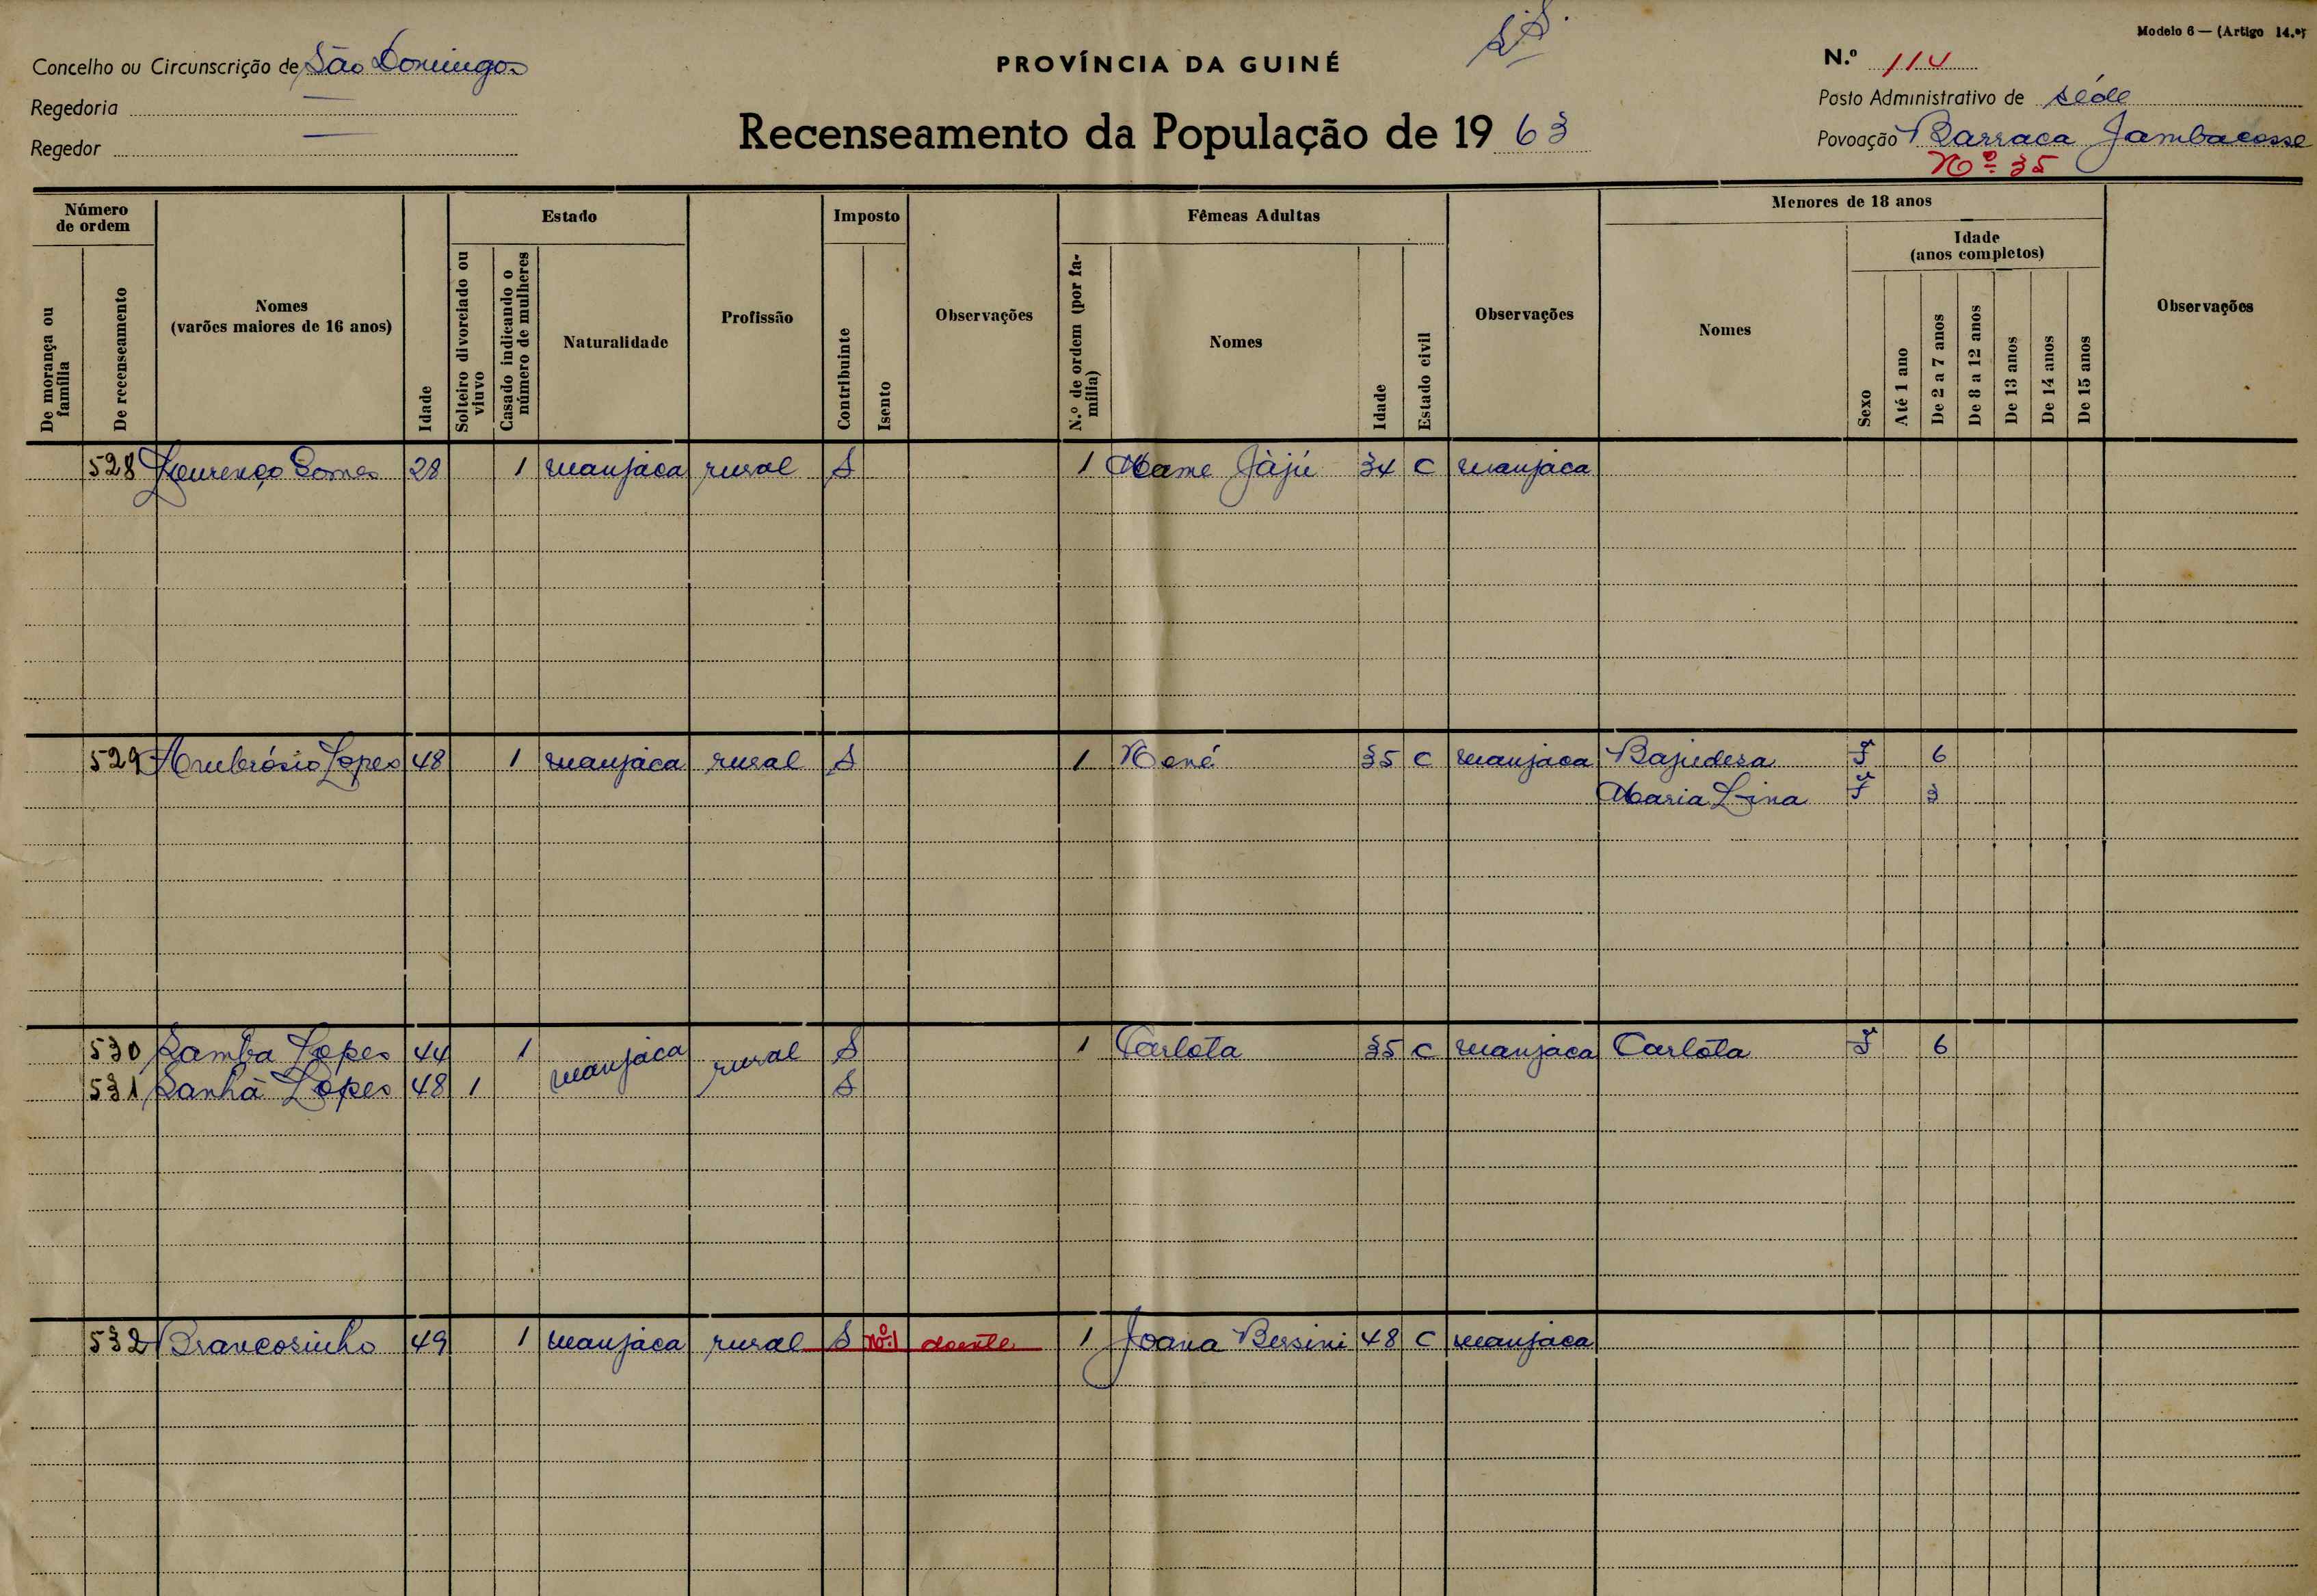 Modelo 6 — (Artigo 14.º)
Concelho ou Circunscrição de São Domingos
PROVÍNCIA DA GUINÉ
N.º 114
Regedoria —
Posto Administrativo de séde
Regedor —
Recenseamento da População de 19 63
Povoação Barraca Jambacosse
Nº 35
Número de ordem
De morança ou família
De recenseamento
Nomes
(varões maiores de 16 anos)
Idade
Estado
Solteiro divorciado ou viuvo
Casado indicando o número de mulheres
Naturalidade
Profissão
Imposto
Contribuinte
Isento
Observações
Fêmeas Adultas
N.º de ordem (por família)
Nomes
Idade
Estado civil
Observações
Menores de 18 anos
Nomes
Sexo
Idade
(anos completos)
Até 1 ano
De 2 a 7 anos
De 8 a 12 anos
De 13 anos
De 14 anos
De 15 anos
Observações
528 Lourenço Gomes 28 1 manjaca rural S 1 Mame Jàjú 34 C manjaca
529 Ambrósio Lopes 48 1 manjaca rural S 1 Nené 35 C manjaca Bajudesa F 6
Maria Lina F 3
530 Samba Lopes 44 1 manjaca rural S 1 Carlota 35 C manjaca Carlota F 6
531 Sanhá Lopes 48 1 S
532 Brancosinho 49 1 manjaca rural S Nº1 doente 1 Joana Bersini 48 C manjaca